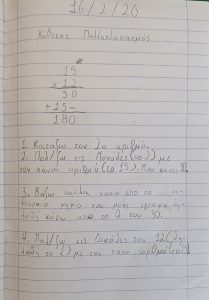 16/2/26
Κάθετος Πολλαπλασιασμός
15
x 12
30
+15-
180
1. Κοιτάζω τον 2ο αριθμό.
2. Πολ/ζω τις Μονάδες (το 2) με
τον πάνω αριθμό (το 15). Που κάνει
3. Βάζω παύλα κάτω από το
ψηφίο του
κάτω από το 0 του 30.
4. Πολ/ζω τις δεκάδες του 12 (δη-
λαδή το 1) με τον πάνω αριθμό (το